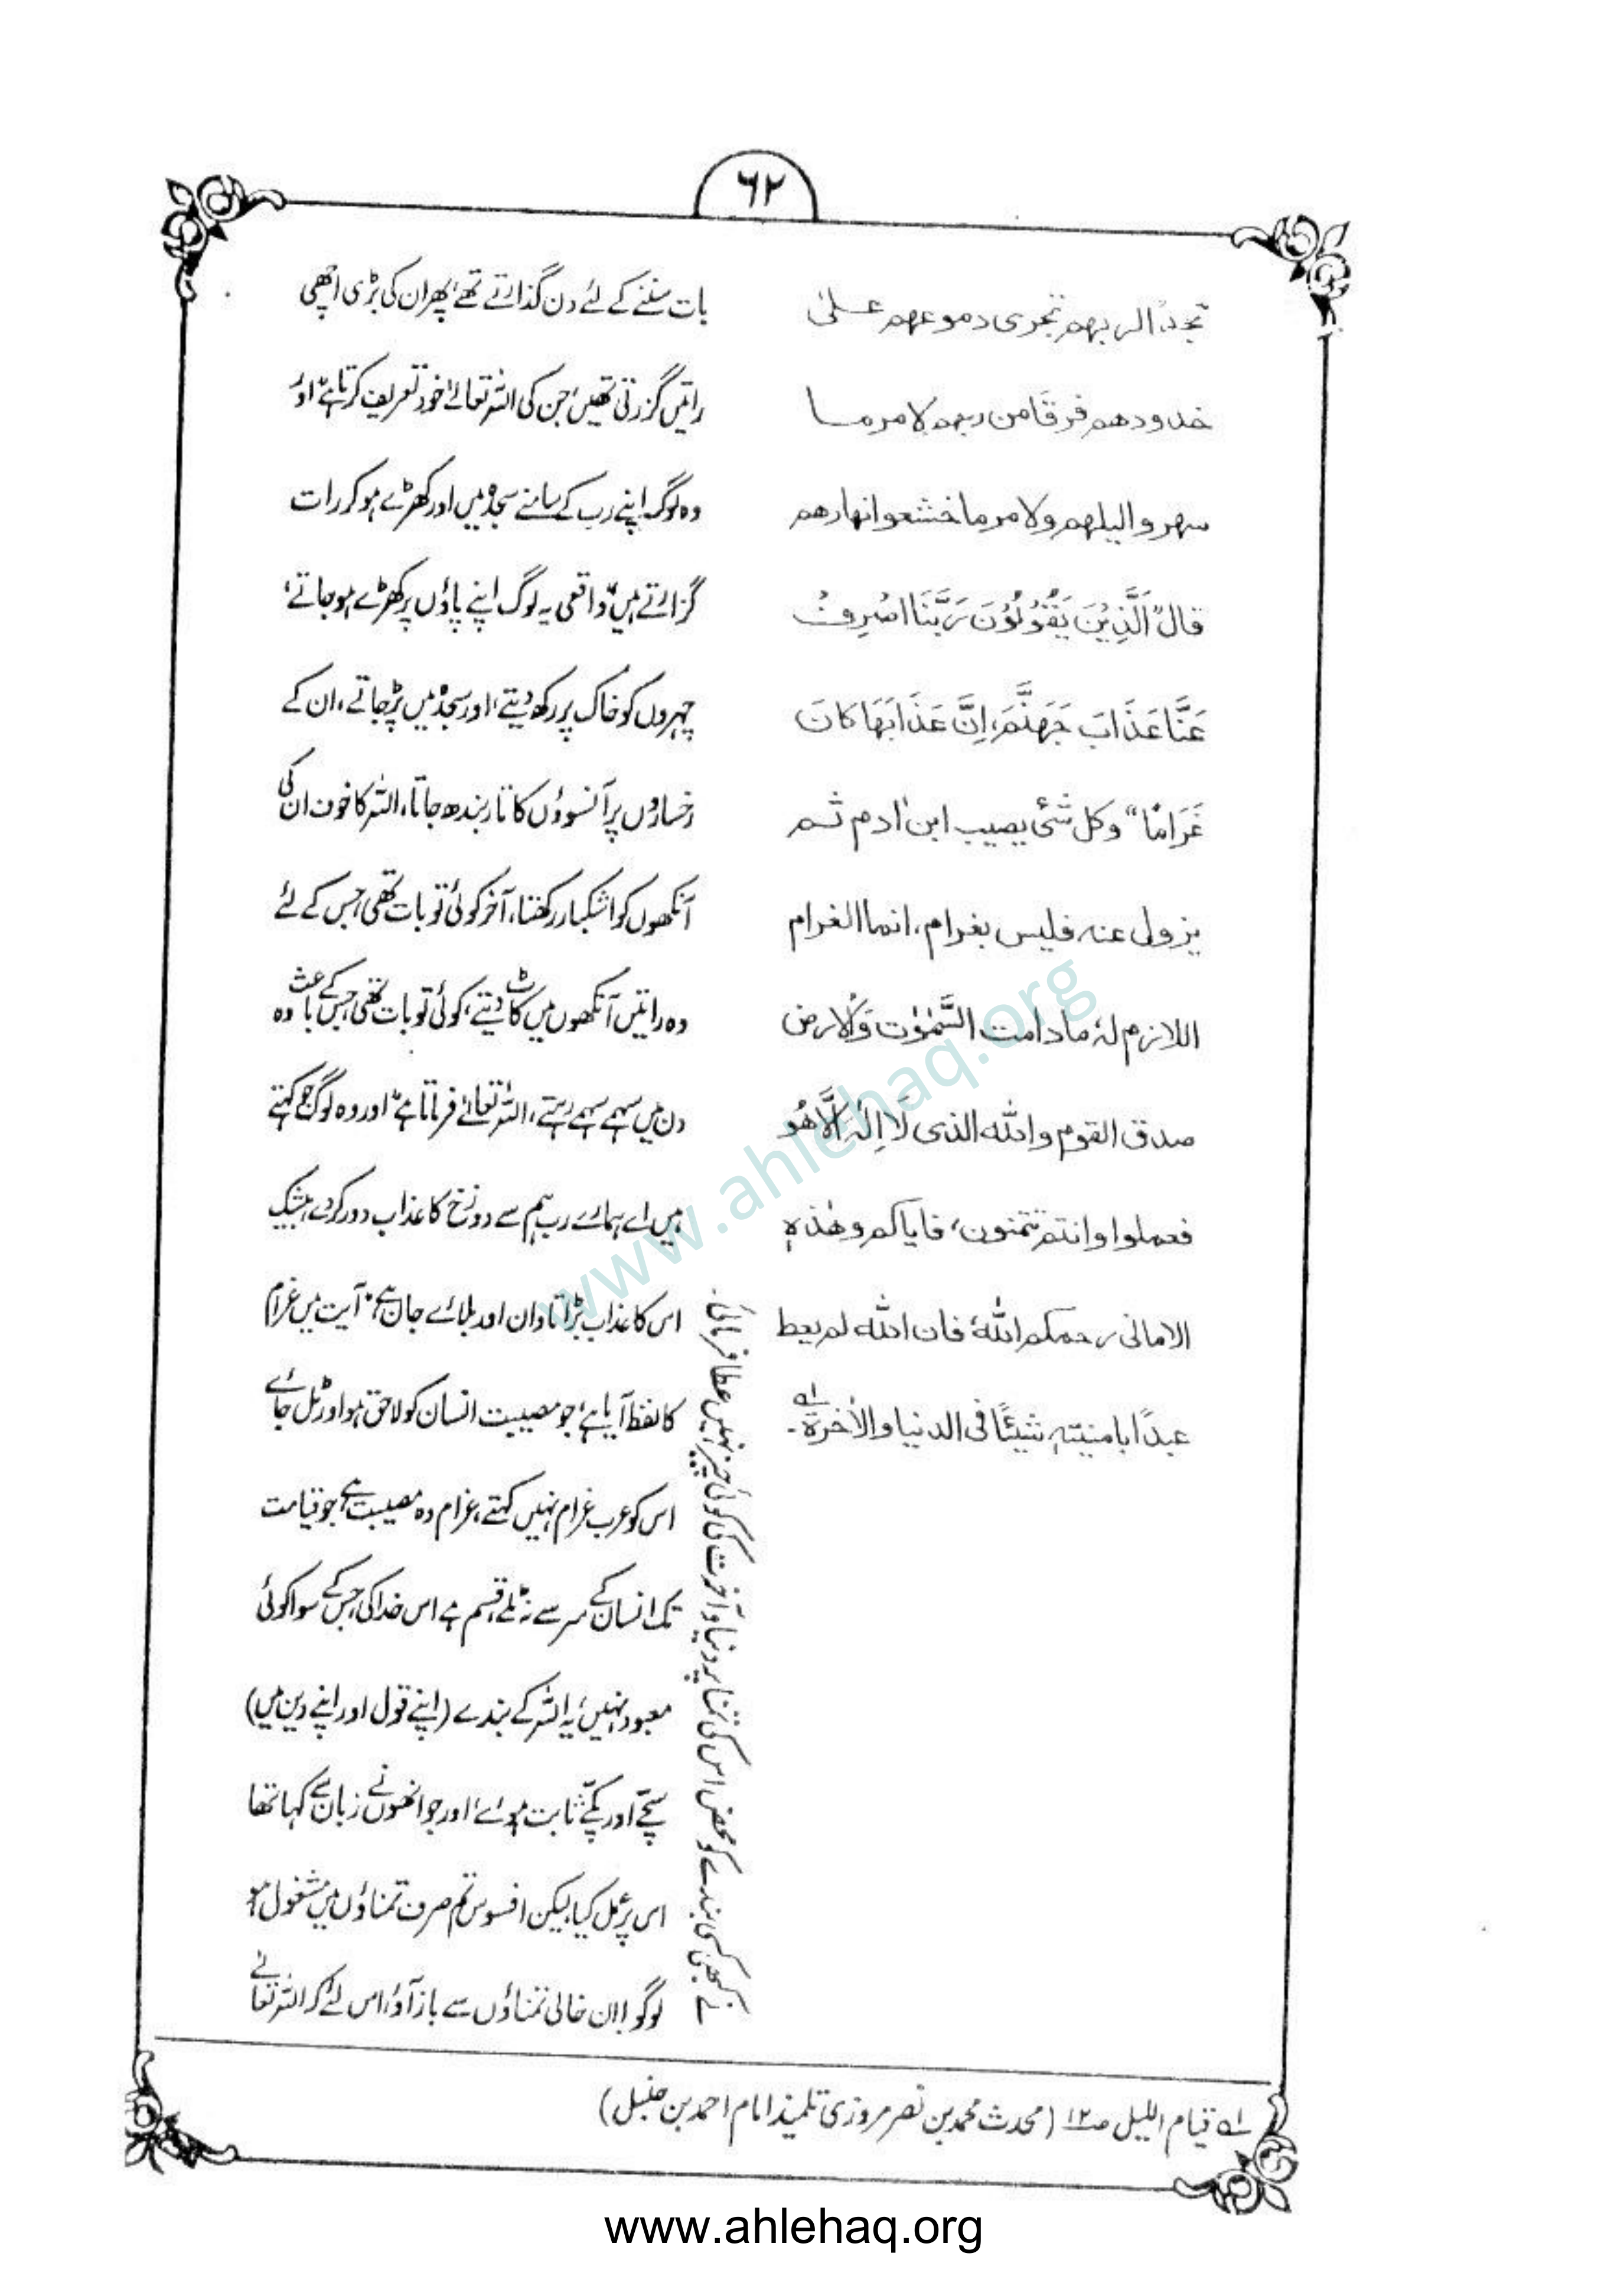 ۶۲
تجدًا لربهم تجری دموعهم علیٰ
خدودهم فرقًا من ربهم لامر ما
سهروا لیلهم ولامر ما خشعوا نهارهم
قال "اَلَّذِیْنَ یَقُوْلُوْنَ رَبَّنَا اصْرِفْ
عَنَّا عَذَابَ جَهَنَّمَ، اِنَّ عَذَابَهَا كَانَ
غَرَامًا" وكل شئ یصیب ابن اٰدم ثم
یزول عنه فلیس بغرام، انما الغرام
اللازم لهٗ مادامت السَّمٰوٰت وَالارض
صدق القوم والله الذی لَا اِلٰهَ اِلَّا هُوَ
فعملوا وانتم تتمنون، فایاكم وهٰذهٖ
الامانی رحمكم اللهُ فان الله لم یعط
عبدًا بامنیتهٖ شیئًا فی الدنیا والاٰخرة۔ ؎۱
بات سننے کے لئے دن گذارتے تھے، پھر ان کی بڑی اچھی
راتیں گزرتی تھیں، جن کی اللہ تعالےٰ خود تعریف کرتا ہے "اور
وہ لوگ اپنے رب کے سامنے سجدہ میں اور کھڑے ہو کر رات
گزارتے ہیں" واقعی یہ لوگ اپنے پاؤں پر کھڑے ہو جاتے،
چہروں کو خاک پر رکھ دیتے، اور سجدہ میں پڑ جاتے، ان کے
رخساروں پر آنسوؤں کا تار بندھ جاتا، اللہ کا خوف ان کی
آنکھوں کو اشکبار رکھتا، آخر کوئی تو بات تھی، جس کے لئے
وہ راتیں آنکھوں میں کاٹ دیتے، کوئی تو بات تھی جس کے باعث وہ
دن میں سہمے سہمے رہتے، اللہ تعالےٰ فرماتا ہے "اور وہ لوگ جو کہتے
ہیں اے ہمارے رب ہم سے دوزخ کا عذاب دور کر دے، بیشک
اس کا عذاب بڑا تاوان اور بلائے جان ہے" آیت میں غرام
کا لفظ آیا ہے، جو مصیبت انسان کو لاحق ہو اور ٹل جائے
اس کو عرب غرام نہیں کہتے، غرام وہ مصیبت ہے، جو قیامت
تک انسان کے سر سے نہ ٹلے، قسم ہے اس خدا کی جس کے سوا کوئی
معبود نہیں، یہ اللہ کے بندے (اپنے قول اور اپنے دین میں)
سچے اور پکے ثابت ہوئے، اور جو انھوں نے زبان سے کہا تھا
اس پر عمل کیا، لیکن افسوس تم صرف تمناؤں میں مشغول ہو
لوگو! ان خالی تمناؤں سے باز آؤ، اس لئے کہ اللہ تعالےٰ
نے کبھی کسی بندے کو محض اس کی تمنا پر دنیا و آخرت کی کوئی چیز نہیں عطا فرمائی۔
؎۱ قیام اللیل ص۱۲ (محدث محمد بن نصر مروزی تلمیذ امام احمد بن حنبل)
www.ahlehaq.org
www.ahlehaq.org